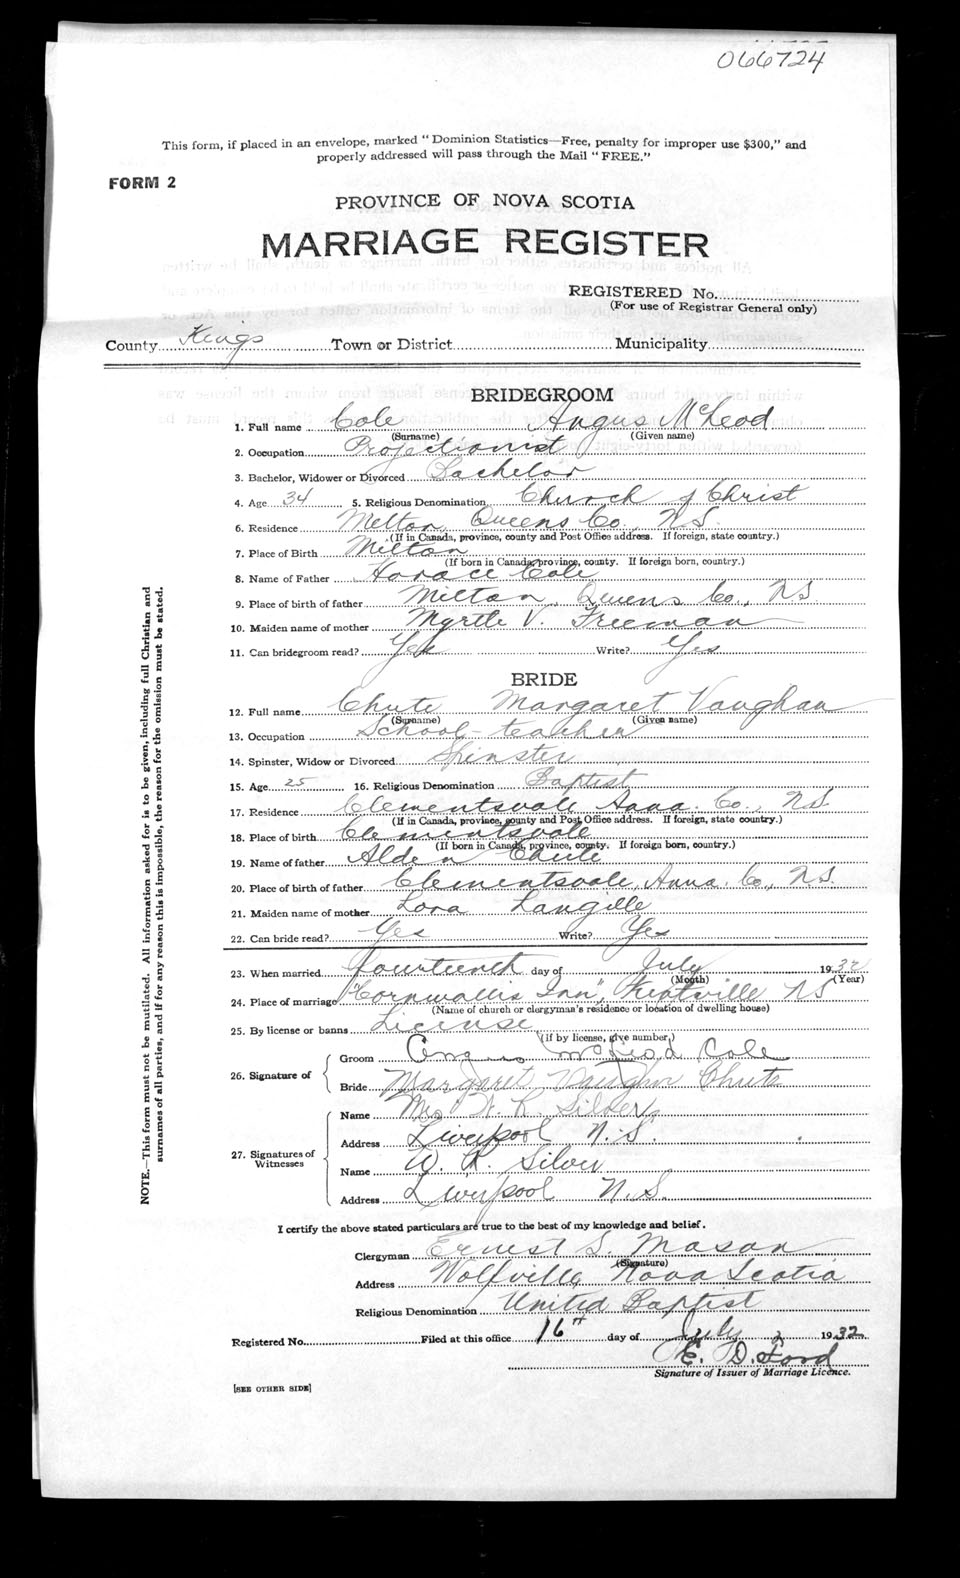 066724
This form, if placed in an envelope, marked "Dominion Statistics—Free, penalty for improper use $300," and
properly addressed will pass through the Mail "FREE."
FORM 2
PROVINCE OF NOVA SCOTIA
MARRIAGE REGISTER
REGISTERED No.
(For use of Registrar General only)
County Kings Town or District Municipality
BRIDEGROOM
1. Full name Cole Angus McLeod
(Surname) (Given name)
2. Occupation Projectionist
3. Bachelor, Widower or Divorced Bachelor
4. Age 34 5. Religious Denomination Church of Christ
6. Residence Milton, Queens Co., N.S.
(If in Canada, province, county and Post Office address. If foreign, state country.)
7. Place of Birth Milton
(If born in Canada, province, county. If foreign born, country.)
8. Name of Father Horace Cole
9. Place of birth of father Milton, Queens Co., N.S.
10. Maiden name of mother Myrtle V. Freeman
11. Can bridegroom read? Yes Write? Yes
BRIDE
12. Full name Chute Margaret Vaughan
(Surname) (Given name)
13. Occupation School-teacher
14. Spinster, Widow or Divorced Spinster
15. Age 25 16. Religious Denomination Baptist
17. Residence Clementsvale Anna. Co., N.S.
(If in Canada, province, county and Post Office address. If foreign, state country.)
18. Place of birth Clementsvale
(If born in Canada, province, county. If foreign born, country.)
19. Name of father Alden Chute
20. Place of birth of father Clementsvale, Anna. Co., N.S.
21. Maiden name of mother Lora Langille
22. Can bride read? Yes Write? Yes
23. When married fourteenth day of July 1932
(Month) (Year)
24. Place of marriage "Cornwallis Inn", Kentville N.S.
(Name of church or clergyman's residence or location of dwelling house)
25. By license or banns License
(If by license, give number)
26. Signature of
Groom Angus McLeod Cole
Bride Margaret Vaughn Chute
27. Signatures of Witnesses
Name Mrs W. R. Silver
Address Liverpool N.S.
Name W. R. Silver
Address Liverpool N.S.
I certify the above stated particulars are true to the best of my knowledge and belief.
Clergyman Ernest S. Mason
(Signature)
Address Wolfville, Nova Scotia
Religious Denomination United Baptist
Registered No. Filed at this office 16th day of July 1932
E. D. Ford
Signature of Issuer of Marriage Licence.
[SEE OTHER SIDE]
NOTE.—This form must not be mutilated. All information asked for is to be given, including full Christian and
surnames of all parties, and if for any reason this is impossible, the reason for the omission must be stated.